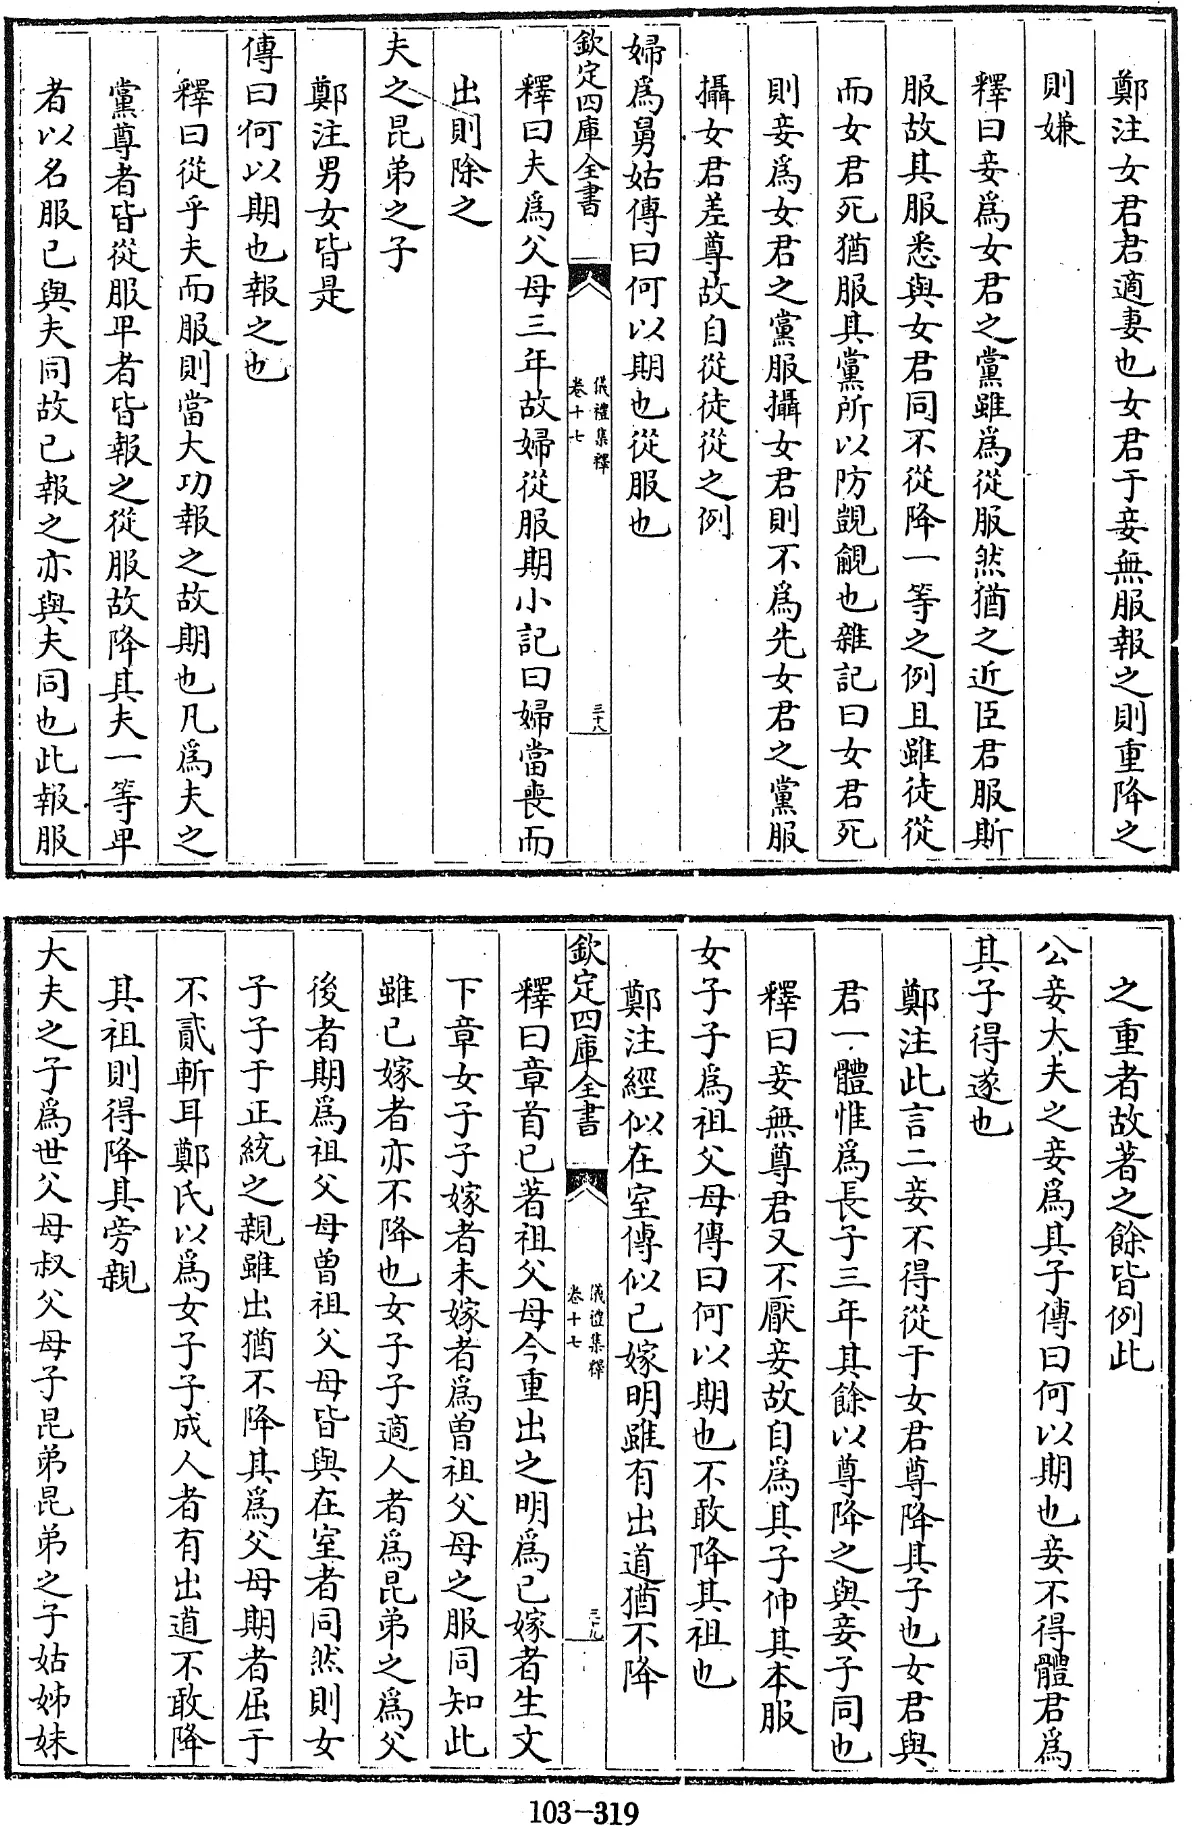 鄭注女君君適妻也女君于妾無服報之則重降之
則嫌
釋曰妾為女君之黨雖為從服然猶之近臣君服斯
服故其服悉與女君同不從降一等之例且雖徒從
而女君死猶服其黨所以防覬覦也雜記曰女君死
則妾為女君之黨服攝女君則不為先女君之黨服
攝女君差尊故自從徒從之例
婦為舅姑傳曰何以期也從服也
欽定四庫全書
儀禮集釋
卷十七
三十八
釋曰夫為父母三年故婦從服期小記曰婦當喪而
出則除之
夫之昆弟之子
鄭注男女皆是
傳曰何以期也報之也
釋曰從乎夫而服則當大功報之故期也凡為夫之
黨尊者皆從服卑者皆報之從服故降其夫一等卑
者以名服已與夫同故已報之亦與夫同也此報服
之重者故著之餘皆例此
公妾大夫之妾為其子傳曰何以期也妾不得體君為
其子得遂也
鄭注此言二妾不得從于女君尊降其子也女君與
君一體惟為長子三年其餘以尊降之與妾子同也
釋曰妾無尊君又不厭妾故自為其子伸其本服
女子子為祖父母傳曰何以期也不敢降其祖也
鄭注經似在室傳似已嫁明雖有出道猶不降
欽定四庫全書
儀禮集釋
卷十七
三十九
釋曰章首已著祖父母今重出之明為已嫁者生文
下章女子子嫁者未嫁者為曾祖父母之服同知此
雖已嫁者亦不降也女子子適人者為昆弟之為父
後者期為祖父母曾祖父母皆與在室者同然則女
子子于正統之親雖出猶不降其為父母期者屈于
不貳斬耳鄭氏以為女子子成人者有出道不敢降
其祖則得降其旁親
大夫之子為世父母叔父母子昆弟昆弟之子姑姊妹
103-319